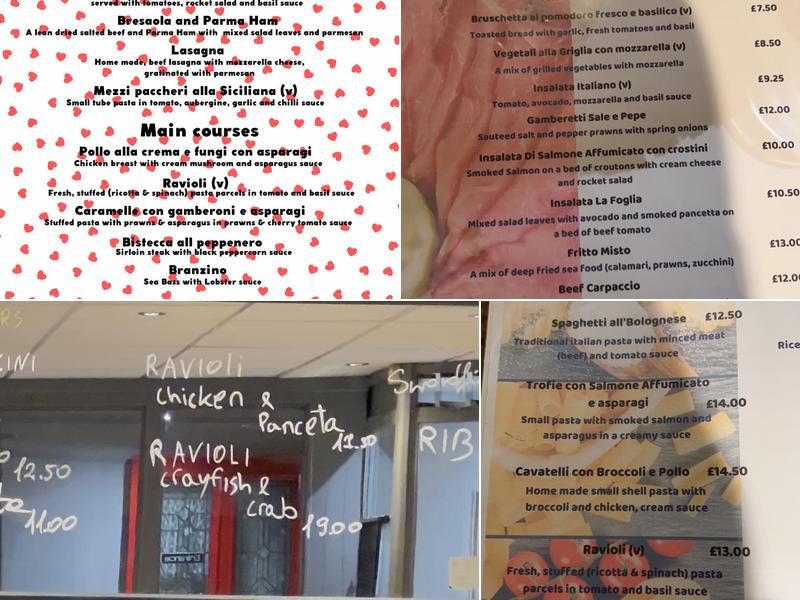 served with tomatoes, rocket salad and basil sauce
Bresaola and Parma Ham
A lean dried salted beef and Parma Ham with mixed salad leaves and parmesan
Lasagna
Home made, beef lasagna with mozzarella cheese,
gratinated with parmesan
Mezzi paccheri alla Siciliana (v)
Small tube pasta in tomato, aubergine, garlic and chilli sauce
Main courses
Pollo alla crema e fungi con asparagi
Chicken breast with cream mushroom and asparagus sauce
Ravioli (v)
Fresh, stuffed (ricotta & spinach) pasta parcels in tomato and basil sauce
Caramelle con gamberoni e asparagi
Stuffed pasta with prawns & asparagus in prawns & cherry tomato sauce
Bistecca all peppenero
Sirloin steak with black peppercorn sauce
Branzino
Sea Bass with Lobster sauce
Bruschetta al pomodoro fresco e basilico (v) £7.50
Toasted bread with garlic, fresh tomatoes and basil
Vegetali alla Griglia con mozzarella (v) £8.50
A mix of grilled vegetables with mozzarella
Insalata Italiano (v) £9.25
Tomato, avocado, mozzarella and basil sauce
Gamberetti Sale e Pepe £12.00
Sauteed salt and pepper prawns with spring onions
Insalata Di Salmone Affumicato con crostini £10.00
Smoked Salmon on a bed of croutons with cream cheese
and rocket salad
Insalata La Foglia £10.50
Mixed salad leaves with avocado and smoked pancetta on
a bed of beef tomato
Fritto Misto £13.00
A mix of deep fried sea food (calamari, prawns, zucchini)
Beef Carpaccio £12.00
RS
INI
12.50
11.00
RAVIOLI
chicken &
Panceta
RAVIOLI
crayfish &
crab
19.00
RIB
Entrance
Spaghetti all'Bolognese £12.50
Traditional italian pasta with minced meat
(beef) and tomato sauce
Trofie con Salmone Affumicato
e asparagi £14.00
Small pasta with smoked salmon and
asparagus in a creamy sauce
Cavatelli con Broccoli e Pollo £14.50
Home made small shell pasta with
broccoli and chicken, cream sauce
Ravioli (v) £13.00
Fresh, stuffed (ricotta & spinach) pasta
parcels in tomato and basil sauce
Rice